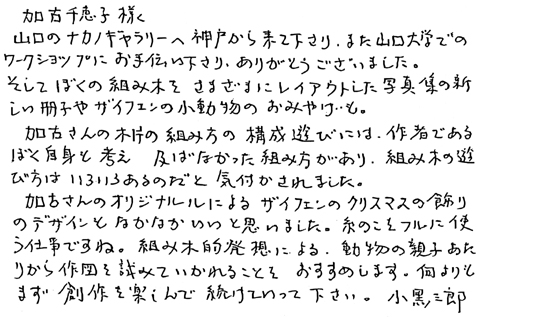 加古千恵子様く
山口のナカノギャラリーへ神戸から来て下さり、また山口大学での
ワークショップにお手伝い下さり、ありがとうございました。
そしてぼくの組み木をさまざまにレイアウトした写真集の新
しい冊子やザイフェンの小動物のおみやげも。
加古さんの木片の組み方の構成遊びには、作者である
ぼく自身と考え及ばなかった組み方があり、組み木の遊
び方はいろいろあるのだと気付かされました。
加古さんのオリジナルルによるザイフェンのクリスマスの飾り
のデザインもなかなかいいと思いました。糸のこをフルに使
う仕事ですね。組み木的発想による、動物の親子あた
りから作図を試みていかれることを おすすめします。何よりも
まず 創作を楽しんで続けていって下さい。 小黒三郎